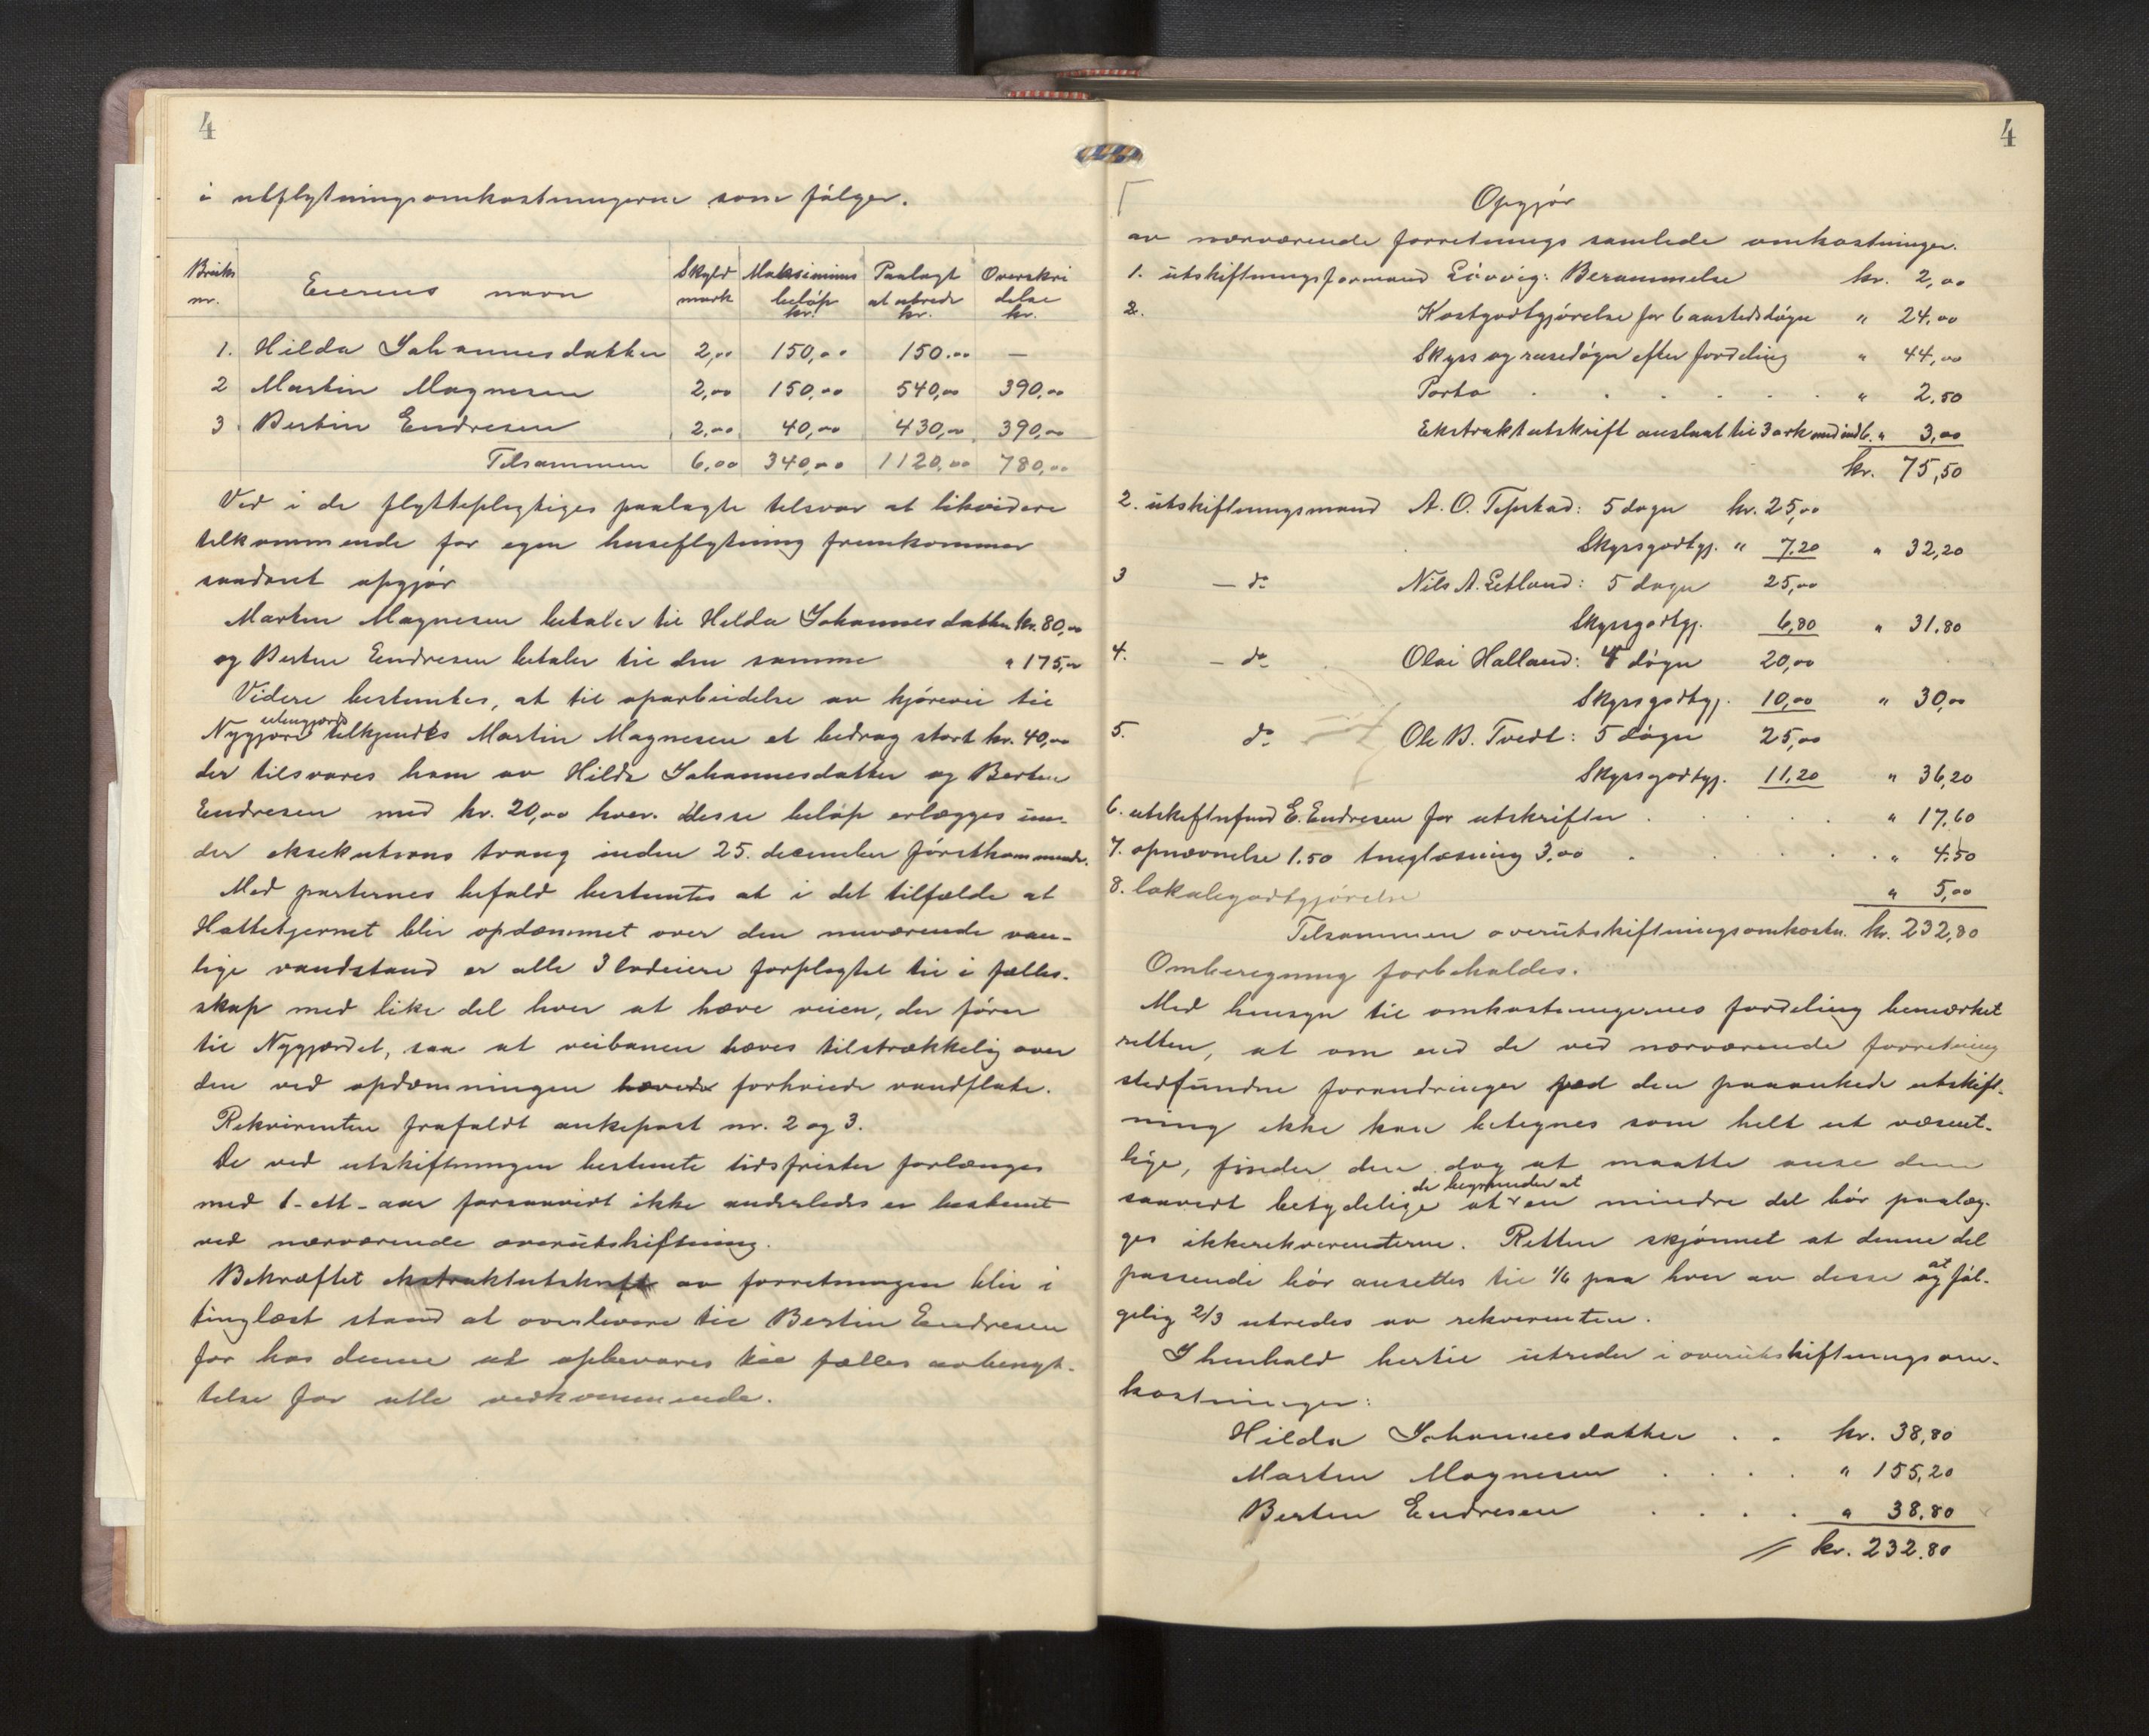 4
i utflytningsomkostningerne som følger.
Bruks nr. | Eierens navn | Skyld mark | Maksimums beløp kr. | Paalagt at utrede kr. | Overskridelse kr.
1. Hilda Johannesdatter 2,00 150,00 150.00 —
2 Martin Magnesen 2,00 150,00 540,00 390,00
3 Bertin Endresen 2,00 40,00 430,00 390,00
Tilsammen 6,00 340,00 1120,00 780,00
Ved i de flyttepligtiges paalagte tilsvar at likvidere
tilkommende for egen huseflytning fremkommer
saadant opgjør
Martin Magnesen betaler til Hilda Johannesdatter kr. 80,00
og Bertin Endresen betaler til den samme " 175,00
Videre bestemtes, at til oparbeidelse av kjørevei til
Nygjære utengjærds tilkjendes Martin Magnesen et bedrag stort kr. 40,00
der tilsvares ham av Hilda Johannesdatter og Bertin
Endresen med kr. 20,00 hver. Disse beløp erlægges un-
der eksekutions tvang inden 25. december førstkommende.
Med parternes bifald bestemtes at i det tilfælde at
Hattetjernet blir opdæmmet over den nuværende van-
lige vandstand er alle 3 lodeiere forpligtet til i fælles-
skap med like del hver at hæve veien, der fører
til Nygjærdet, saa at veibanen hæves tilstrækkelig over
den ved opdæmningen hævede forhøiede vandflate.
Rekvirenten frafaldt ankepost nr. 2 og 3.
De ved utskiftningen bestemte tidsfrister forlænges
med 1 - ett - aar forsaavidt ikke anderledes er bestemt
ved nærværende overutskiftning.
Bekræftet ekstraktutskrift av forretningen blir i
tinglæst stand at overlevere til Bertin Endresen
for hos denne at opbevares til fælles avbenyt-
telse for alle vedkommende.
4
Opgjør
av nærværende forretnings samlede omkostninger.
1. utskiftningsformand Løvvig: Berammelse kr. 2,00
2. Kostgodtgjørelse for 6 aastedsdøgn " 24,00
Skyss og reisedøgn efter fordeling " 44,00
Porto " 2.50
Ekstraktutskrift anslaat til 3 ark med indb. " 3,00
kr. 75,50
2. utskiftningsmand A. O. Tepstad: 5 dage kr. 25,00
Skyssgodtgj. " 7,20 " 32,20
3 — do Nils A. Letland: 5 dage 25,00
Skyssgodtgj. 6,80 " 31.80
4. — do Olai Halland: 4 døgn 20,00
Skyssgodtgj. 10,00 " 30,00
5. do Ole B. Tvedt: 5 døgn 25,00
Skyssgodtgj. 11.20 " 36,20
6. utskiftnfmd E. Endresen for utskrifter " 17.60
7. opnævnelse 1.50 tinglæsning 3,00 " 4.50
8. lokalegodtgjørelse " 5,00
Tilsammen overutskiftningsomkostn. kr. 232,80
Omberegning forbeholdes.
Med hensyn til omkostningernes fordeling bemærket
retten, at om end de ved nærværende forretning
stedfundne forandringer ved den paaankede utskift-
ning ikke kan betegnes som helt ut væsent-
lige, finder den dog at maatte anse dem
saavidt betydelige at de begrunder at en mindre del bør paalæg-
ges ikkerekvirenterne. Retten skjønnet at denne del
passende bør ansettes til 1/6 paa hver av disse og at føl-
gelig 2/3 utredes av rekvirenten.
I henhold hertil utreder i overutskiftningsom-
kostninger:
Hilda Johannesdatter . . kr. 38,80
Martin Magnesen . . . . " 155,20
Bertin Endresen . . . . " 38,80
kr. 232.80